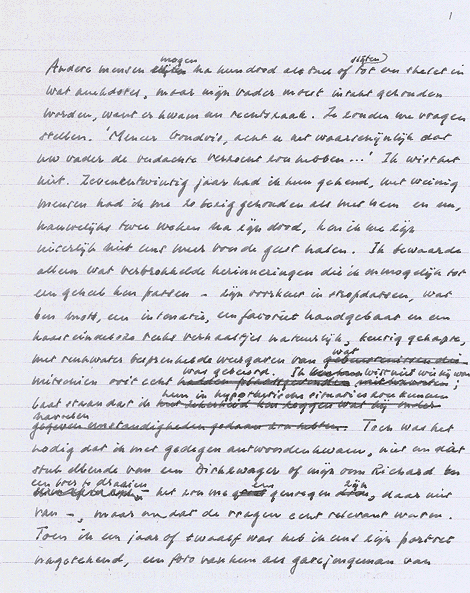 1
mogen slijten
Andere mensen na hun dood als stuk of tot een skelet in
wat anekdotes, maar mijn vader moest intact gehouden
worden, want er kwam een rechtszaak. Ze zouden me vragen
stellen. 'Meneer Goudvis, acht u het waarschijnlijk dat
uw vader de verdachte verzocht zou hebben...' Ik wist het
niet. Zevenentwintig jaar had ik hem gekend, met weinig
mensen had ik me zo bezig gehouden als met hem en nu,
nauwelijks twee weken na zijn dood, kon ik me zijn
uiterlijk niet eens meer voor de geest halen. Ik bewaarde
alleen wat verbrokkelde herinneringen die ik onmogelijk tot
een geheel kon passen – zijn voorkeur in stropdassen, wat
bon mots, een intonatie, een favoriet handgebaar en een
haast eindeloze reeks verhaaltjes natuurlijk, keurig gekapte,
met reukwater besprenkelde weergaven van wat
was gebeurd. Ik wist niet wie hij was
misschien ooit echt ;
hem in hypothetische situaties zou kunnen
laat staan dat ik
navoelen
Toen was het
nodig dat ik met gedegen antwoorden kwam, niet om dat
stuk ellende van een Dirkswager of mijn oom Richard een
een oor te draaien
– het zou me een genoegen zijn, daar niet
van –, maar omdat de vragen echt relevant waren.
Toen ik een jaar of twaalf was heb ik eens zijn portret
nagetekend, een foto van hem als gasjongeman van